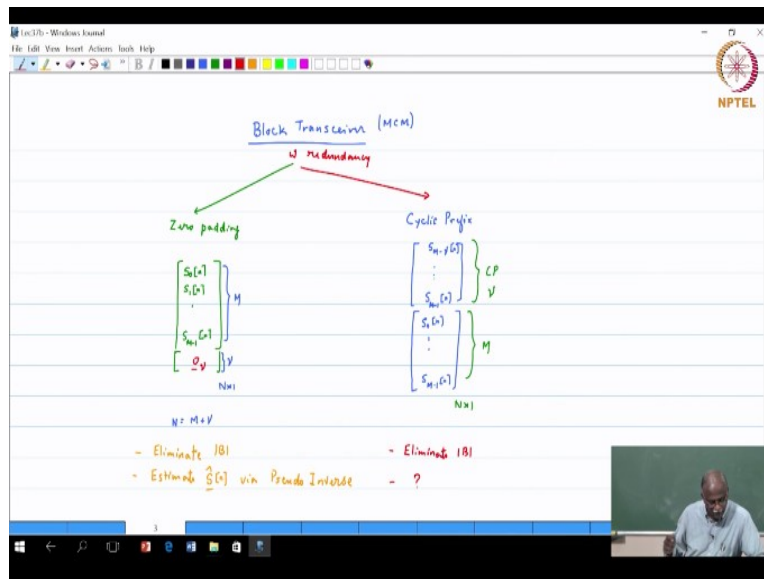 Lec37b - Windows Journal
File Edit View Insert Actions Tools Help
NPTEL
Block Transceiver (MCM)
w redundancy
Zero padding
S₀[n]
S₁[n]
⋮
S_{M-1}[n]
M
0_ν
ν
N×1
N = M+ν
- Eliminate IBI
- Estimate Ŝ[n] via Pseudo Inverse
Cyclic Prefix
S_{M-ν}[n]
⋮
S_{M-1}[n]
CP
ν
S₀[n]
⋮
S_{M-1}[n]
M
N×1
- Eliminate IBI
- ?
3